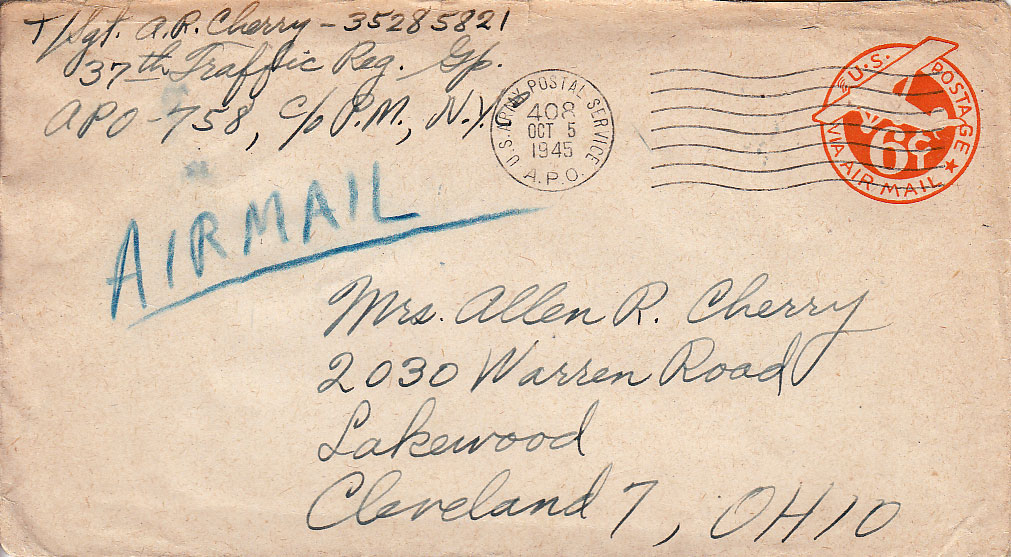 T/Sgt. A.R. Cherry - 35285821
37th Traffic Reg. Gp.
APO - 758, c/o P.M., N.Y.
U.S. ARMY POSTAL SERVICE
408
OCT 5
1945
A.P.O.
U.S. POSTAGE
6¢
VIA AIR MAIL
AIRMAIL
Mrs. Allen R. Cherry
2030 Warren Road
Lakewood
Cleveland 7, OHIO